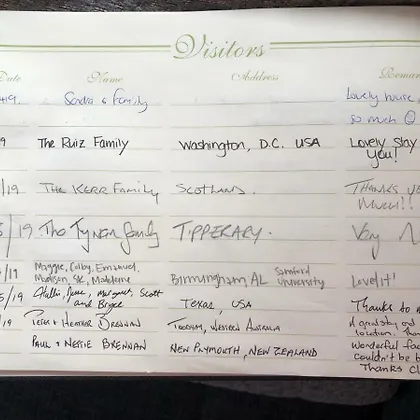 Visitors
Date Name Address Remar
19. Sandra & family Lovely house
so much
9 The Ruiz Family Washington, D.C. USA Lovely Stay
you!
/19 THE KERR FAMILY SCOTLAND. THANKS
MUCH!!
/19 The Tynan family TIPPERARY. Very
/19 Maggie, Colby, Emmanuel, Birmingham, AL Samford Love it!
Madison, Madeleine University
/19 Margaret, Scott Texas, USA Thanks to
and Bryce
/19 PETER & HEATHER BRENNAN WESTERN AUSTRALIA A great stay
location,
PAUL & NESSIE BRENNAN NEW PLYMOUTH, NEW ZEALAND Wonderful
couldn't be
Thanks